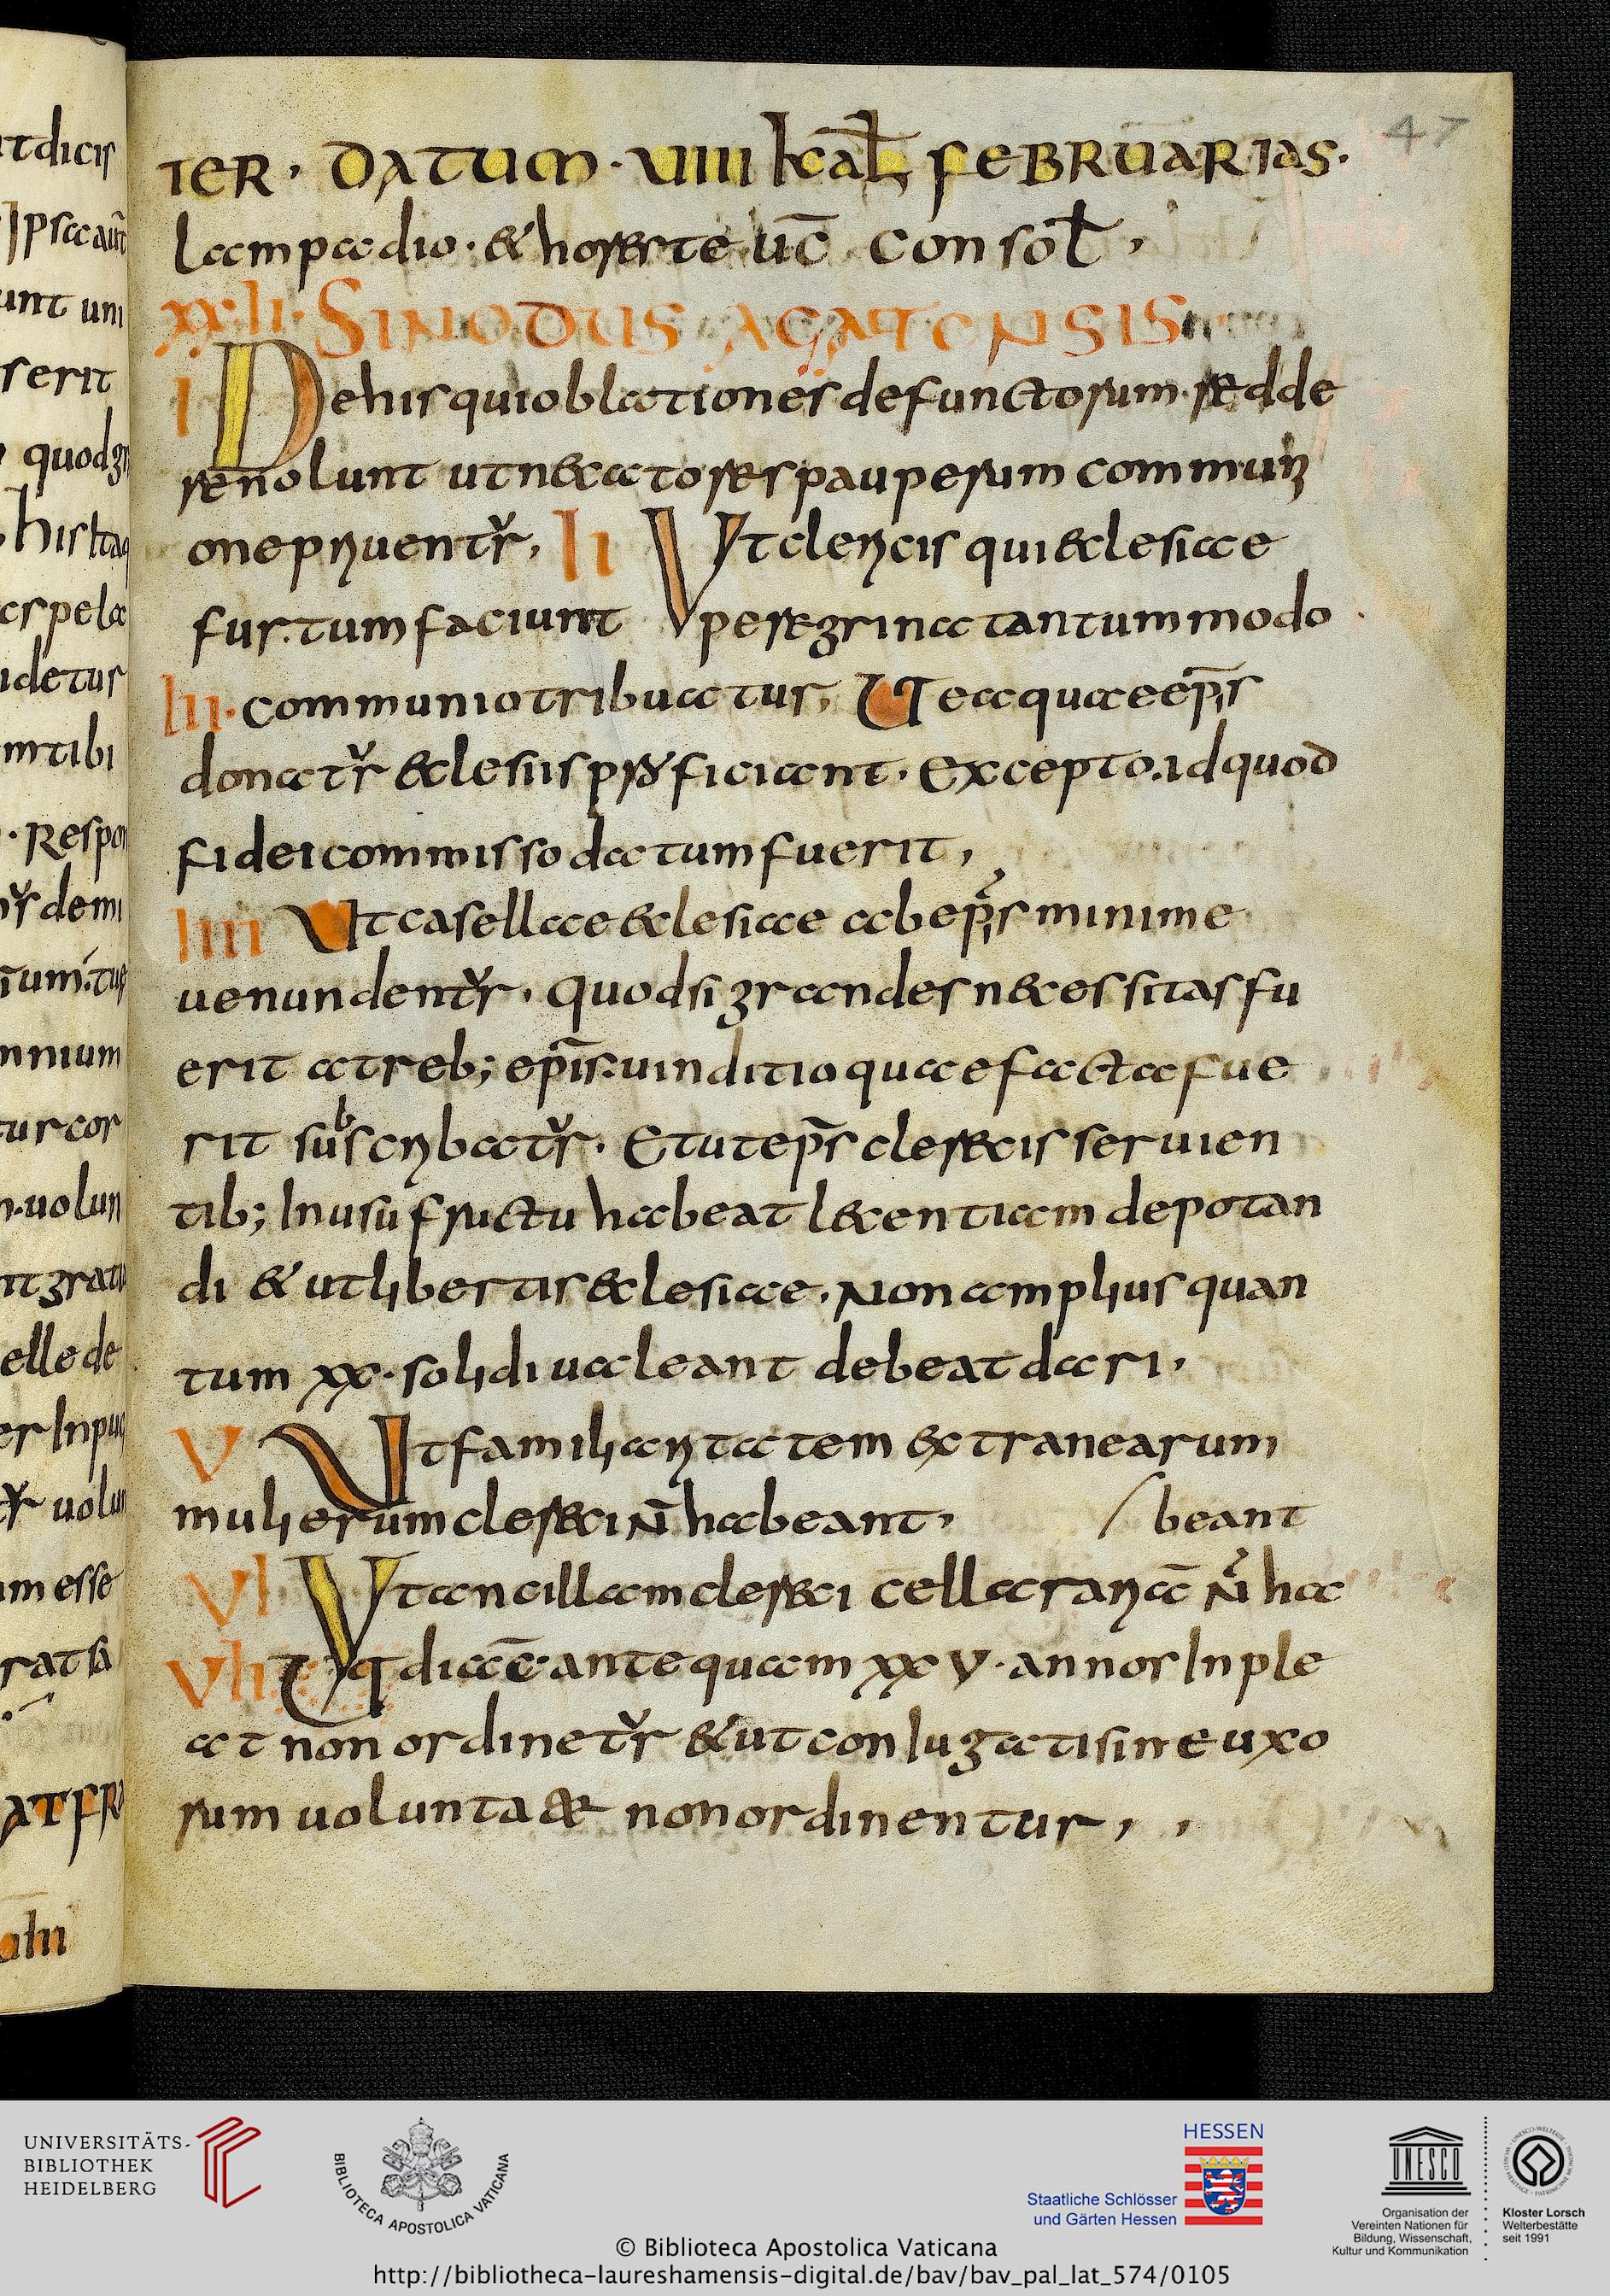 47
TER. DATUM. VIIII kcal̄. FEBRUARIAS.
lampadio. & horeste uc̄ consol̄.
xxlı. SINODUS AGATENSIS
I De his qui oblationes defunctorum redde
re nolunt ut necatores pauperum communi
one priuentur̆. II Ut clericis qui eclesiae
furtum faciunt peregrina tantummodo
III. communio tribuatur, Ut ea quae ep̄is
donatr̆ eclesiis proficiant. Excepto id quod
fidei commisso datum fuerit,
IIII Ut casellae eclesiae ab ep̄is minime
uenundentr̆. quod si grandes necessitas fu
erit atreb; ep̄is. uinditio quae facta fue
rit subscribatr̆. Et ut ep̄s clerecis seruien
tib; In usu fructu habeat lecentiam depotan
di & ut libertis eclesiae. Non amplius quan
tum xx. solidi ualeant debeat dari,
V Ut familiaritatem extranearum
mulierum clereci n̄ habeant, / beant
VI Ut ancillam clereci cellararia n̄ ha
VII Ut diac̄ ante quam xxv. annos Inple
at non ordinetr̆ & ut coniugati sine uxo
rum uoluntate non ordinentur,,
UNIVERSITÄTS-
BIBLIOTHEK
HEIDELBERG
BIBLIOTECA APOSTOLICA VATICANA
HESSEN
Staatliche Schlösser
und Gärten Hessen
UNESCO
Organisation der
Vereinten Nationen für
Bildung, Wissenschaft,
Kultur und Kommunikation
Kloster Lorsch
Welterbestätte
seit 1991
© Biblioteca Apostolica Vaticana
http://bibliotheca-laureshamensis-digital.de/bav/bav_pal_lat_574/0105